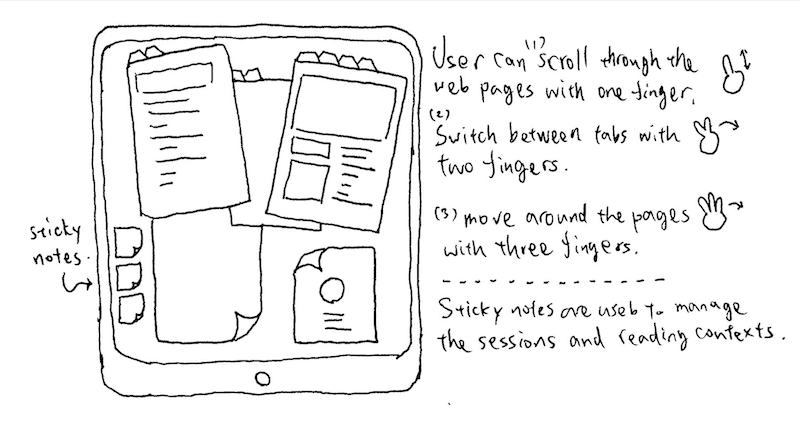 sticky
notes.
(1)
User can scroll through the
web pages with one finger.
(2)
Switch between tabs with
two fingers.
(3) move around the pages
with three fingers.
Sticky notes are useb to manage
the sessions and reading contexts.